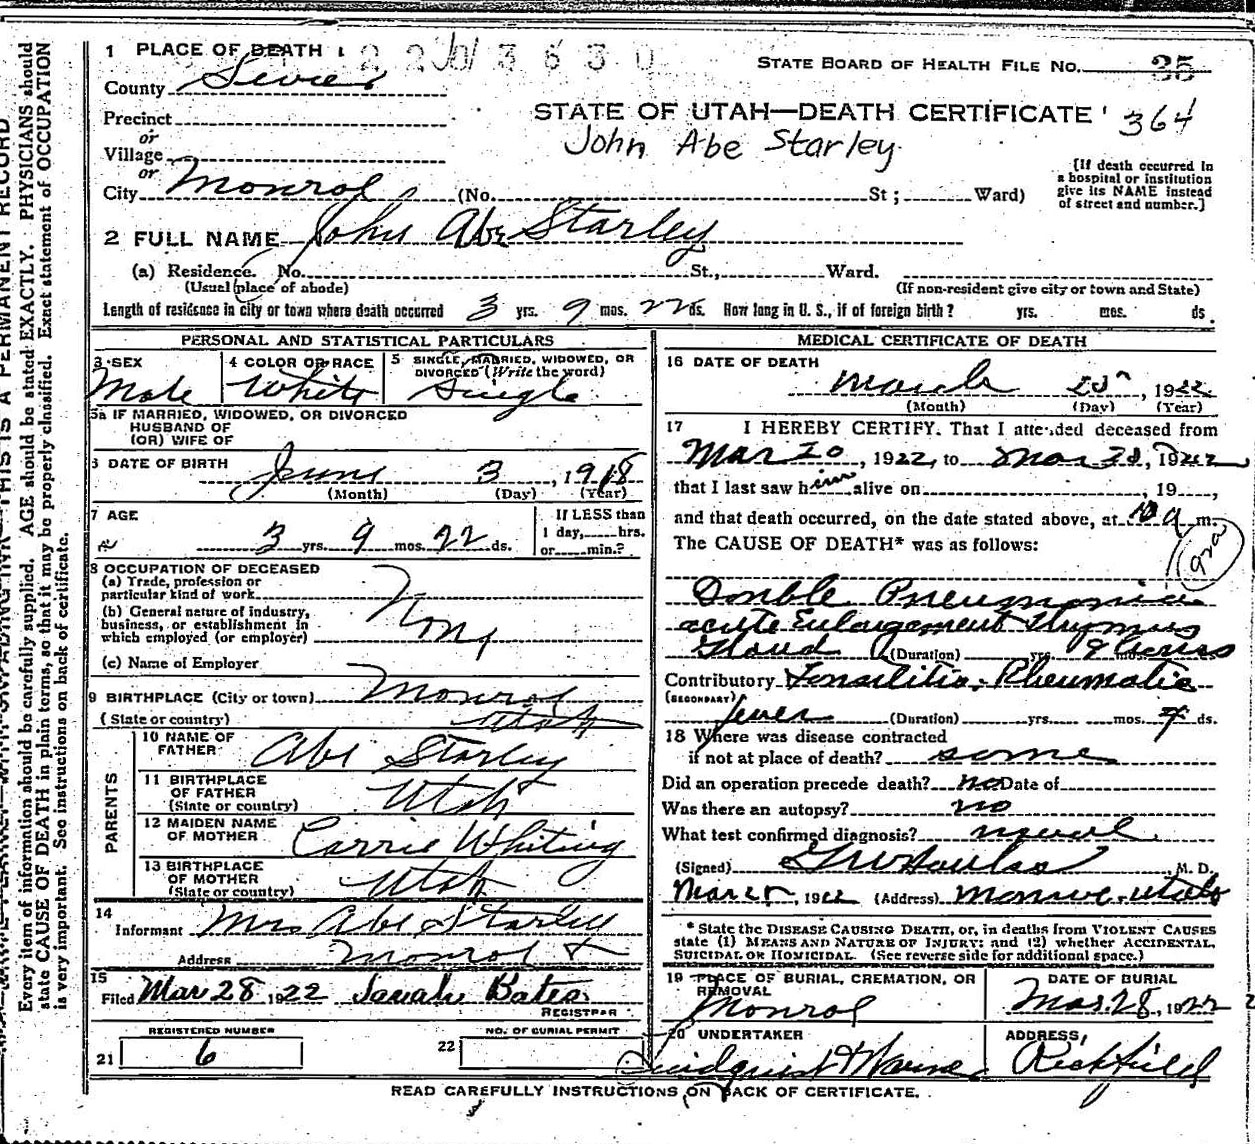 1 PLACE OF DEATH
County Sevier
STATE BOARD OF HEALTH FILE NO. 35
Precinct
STATE OF UTAH—DEATH CERTIFICATE 364
or
Village
John Abe Starley
or
City Monroe (No. St; Ward)
[If death occurred in
a hospital or institution
give its NAME instead
of street and number.]
2 FULL NAME John Abe Starley
(a) Residence. No. St., Ward.
(Usual place of abode) (If non-resident give city or town and State)
Length of residence in city or town where death occurred 3 yrs. 9 mos. 22 ds. How long in U. S., if of foreign birth? yrs. mos. ds.
PERSONAL AND STATISTICAL PARTICULARS
3 SEX
Male
4 COLOR OR RACE
White
5 SINGLE, MARRIED, WIDOWED, OR
DIVORCED (Write the word)
Single
5a IF MARRIED, WIDOWED, OR DIVORCED
HUSBAND OF
(OR) WIFE OF
6 DATE OF BIRTH June 3, 1918
(Month) (Day) (Year)
7 AGE
3 yrs. 9 mos. 22 ds.
If LESS than
1 day, hrs.
or min.?
8 OCCUPATION OF DECEASED
(a) Trade, profession or
particular kind of work
(b) General nature of industry,
business, or establishment in
which employed (or employer)
None
(c) Name of Employer
9 BIRTHPLACE (City or town) Monroe
(State or country) Utah
PARENTS
10 NAME OF
FATHER Abe Starley
11 BIRTHPLACE
OF FATHER
(State or country) Utah
12 MAIDEN NAME
OF MOTHER Carrie Whiting
13 BIRTHPLACE
OF MOTHER
(State or country) Utah
14
Informant Mrs Abe Starley
Address Monroe
15
Filed Mar 28 1922 Sarah Bates
REGISTRAR
REGISTERED NUMBER
21 6
NO. OF BURIAL PERMIT
22
MEDICAL CERTIFICATE OF DEATH
16 DATE OF DEATH
March , 1922
(Month) (Day) (Year)
17 I HEREBY CERTIFY. That I attended deceased from
Mar 20, 1922, to Mar , 1922
that I last saw him alive on , 19 ,
and that death occurred, on the date stated above, at m.
The CAUSE OF DEATH* was as follows:
Double Pneumonia
acute Enlargement Thymus
Gland (Duration) yrs. mos.
Contributory Tonsilitis, Rheumatic
(SECONDARY)
fever (Duration) yrs. mos. ds.
18 Where was disease contracted
if not at place of death? same
Did an operation precede death? no Date of
Was there an autopsy? no
What test confirmed diagnosis?
(Signed) M. D.
Mar , 1922 (Address) Monroe Utah
* State the DISEASE CAUSING DEATH, or, in deaths from VIOLENT CAUSES
state (1) MEANS AND NATURE OF INJURY; and (2) whether ACCIDENTAL,
SUICIDAL OR HOMICIDAL. (See reverse side for additional space.)
19 PLACE OF BURIAL, CREMATION, OR
REMOVAL
Monroe
DATE OF BURIAL
Mar. 28, 1922
20 UNDERTAKER
ADDRESS,
Richfield
READ CAREFULLY INSTRUCTIONS ON BACK OF CERTIFICATE.
THIS IS A PERMANENT RECORD
Every item of information should be carefully supplied. AGE should be stated EXACTLY. PHYSICIANS should
state CAUSE OF DEATH in plain terms, so that it may be properly classified. Exact statement of OCCUPATION
is very important. See instructions on back of certificate.